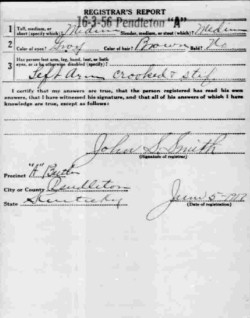 REGISTRAR'S REPORT
16-3-56 Pendleton "A"
1 Tall, medium, or short (specify which)? Medium Slender, medium, or stout (which)? Medium
2 Color of eyes? Gray Color of hair? Brown Bald? No
3 Has person lost arm, leg, hand, foot, or both
eyes, or is he otherwise
disabled (specify)? Left Arm crooked & stif
I certify that my answers are true, that the person registered has read his own
answers, that I have witnessed his signature, and that all of his answers of which I have
knowledge are true, except as follows:
John S. Smith
(Signature of registrar)
Precinct Butler
City or County Pendleton
State Kentucky
June 5-1917
(Date of registration)